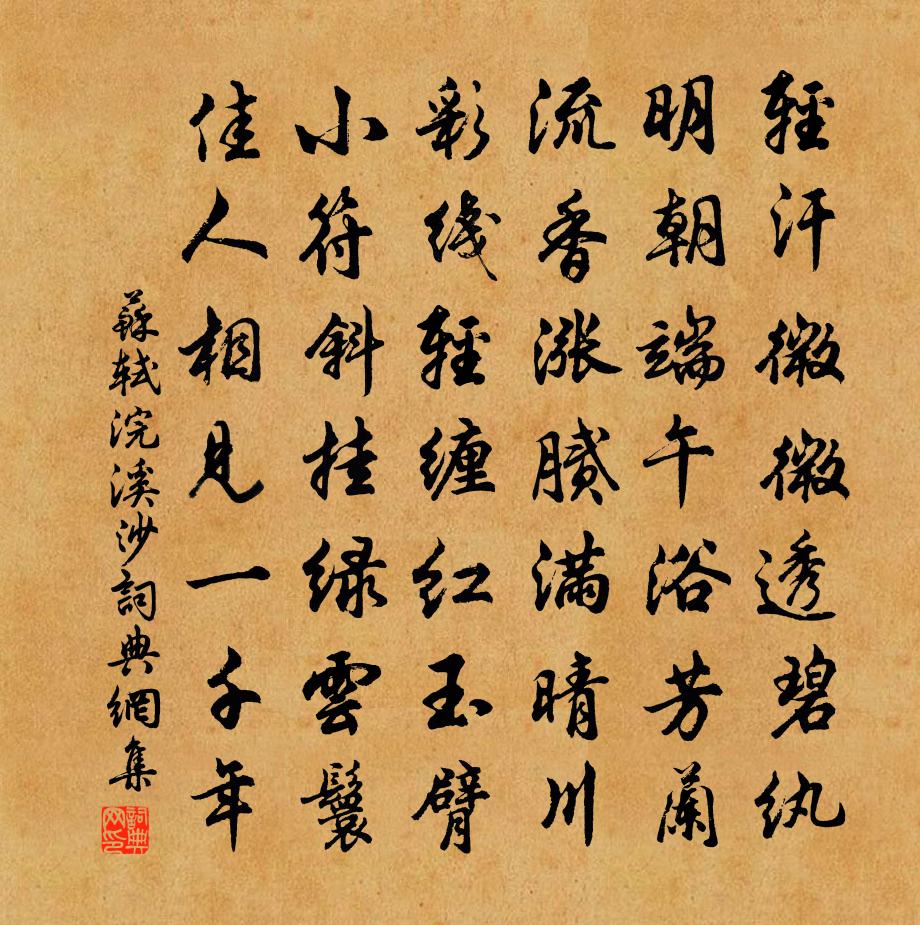 輕汗微微透碧紈
明朝端午浴芳蘭
流香漲膩滿晴川
彩线輕缠红玉臂
小符斜挂绿雲鬟
佳人相見一千年
蘇軾浣溪沙詞典網集
詞典网印